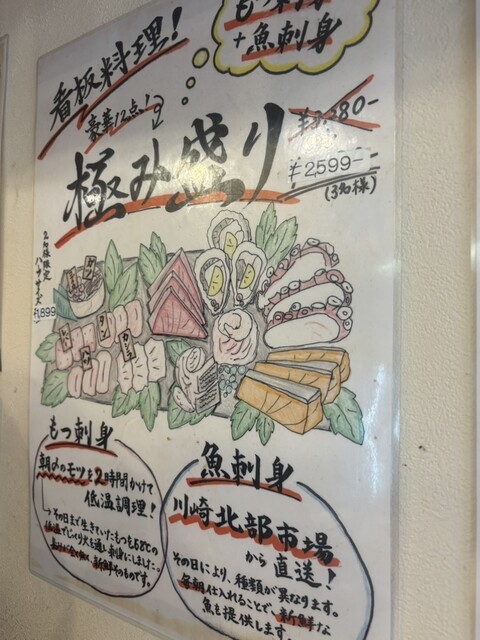 看板料理!
もつ刺身
+魚刺身
豪華12点!
極み盛り
¥2,599-
(3名様)
2名様限定
ハーフサイズ
¥1,899
もつ刺身
朝〆のモツを2時間かけて
低温調理!
→その日まで生きていたもつを68℃の
低温でじっくり火を通し刺身にしました。
新鮮そのものです。
魚刺身
川崎北部市場
から直送!
その日により、種類が異なります。
毎朝仕入れることで、新鮮な
魚を提供します。